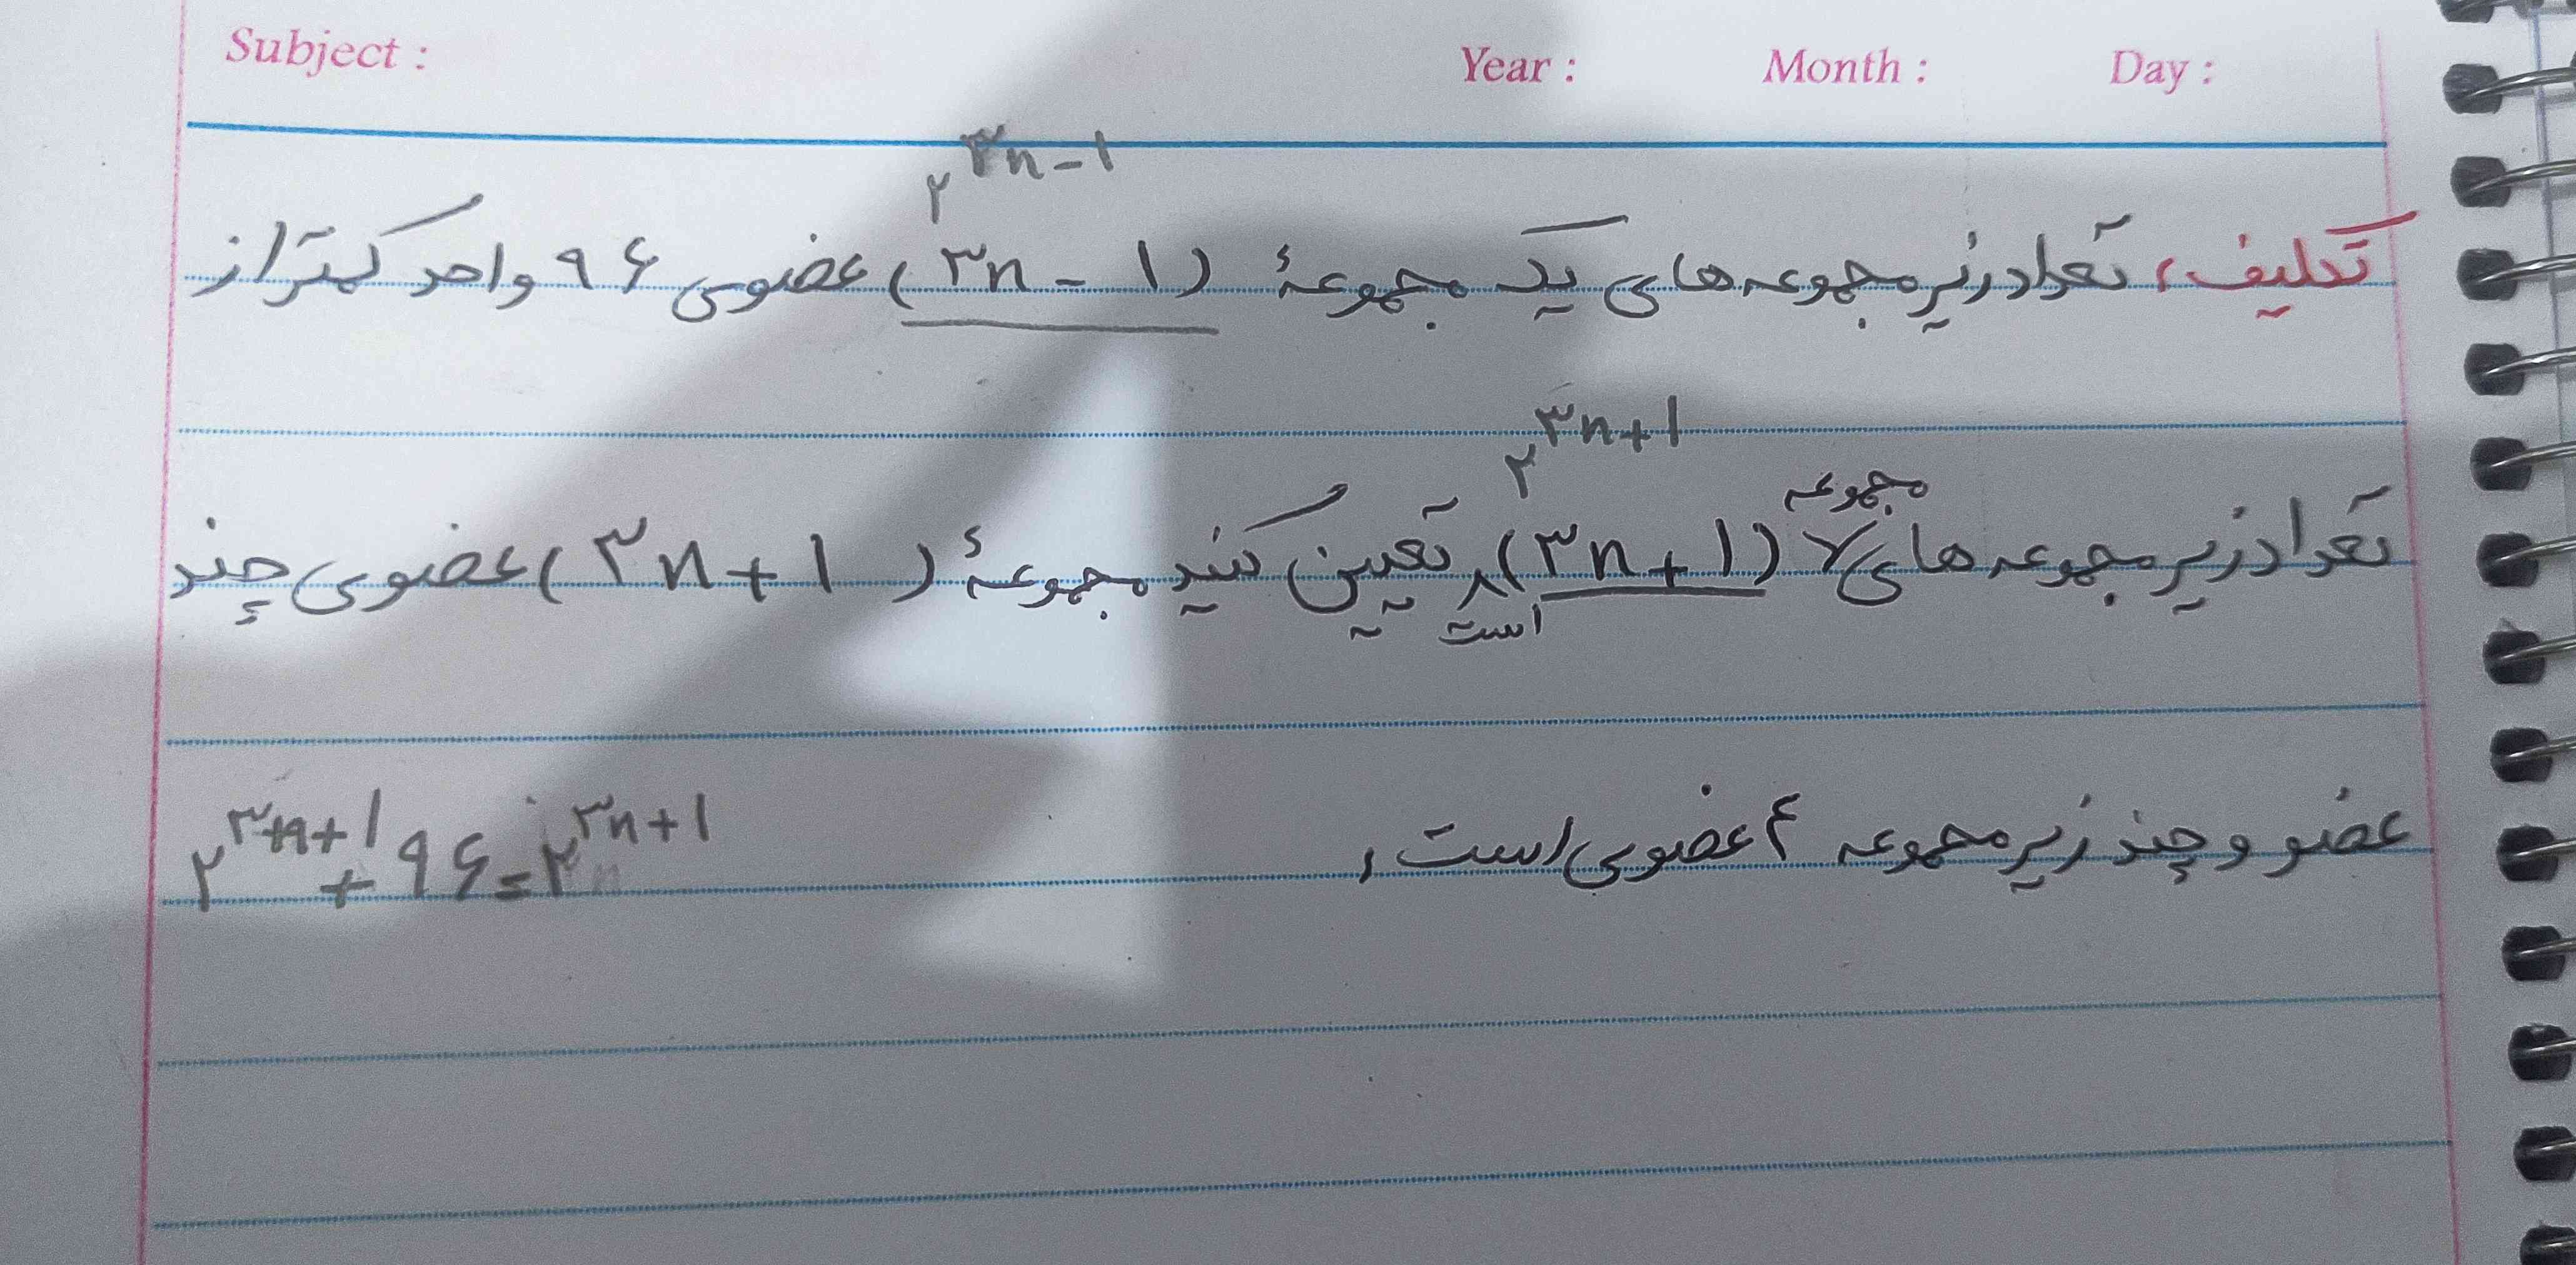 Subject : Year : Month : Day :
۲^۳n-۱
تکلیف، تعداد زیر مجموعه های یک مجموعهٔ (۳n - ۱) عضوی ۹۶ واحد کمتر از
۲^۳n+۱
مجموعه
تعداد زیر مجموعه های (۳n + ۱) تعیین کنید مجموعهٔ (۳n + ۱) عضوی چند
است
عضو و چند زیر مجموعه ۴ عضوی است،
۲^۳n+۱ + ۹۶ = ۲^۳n+۱